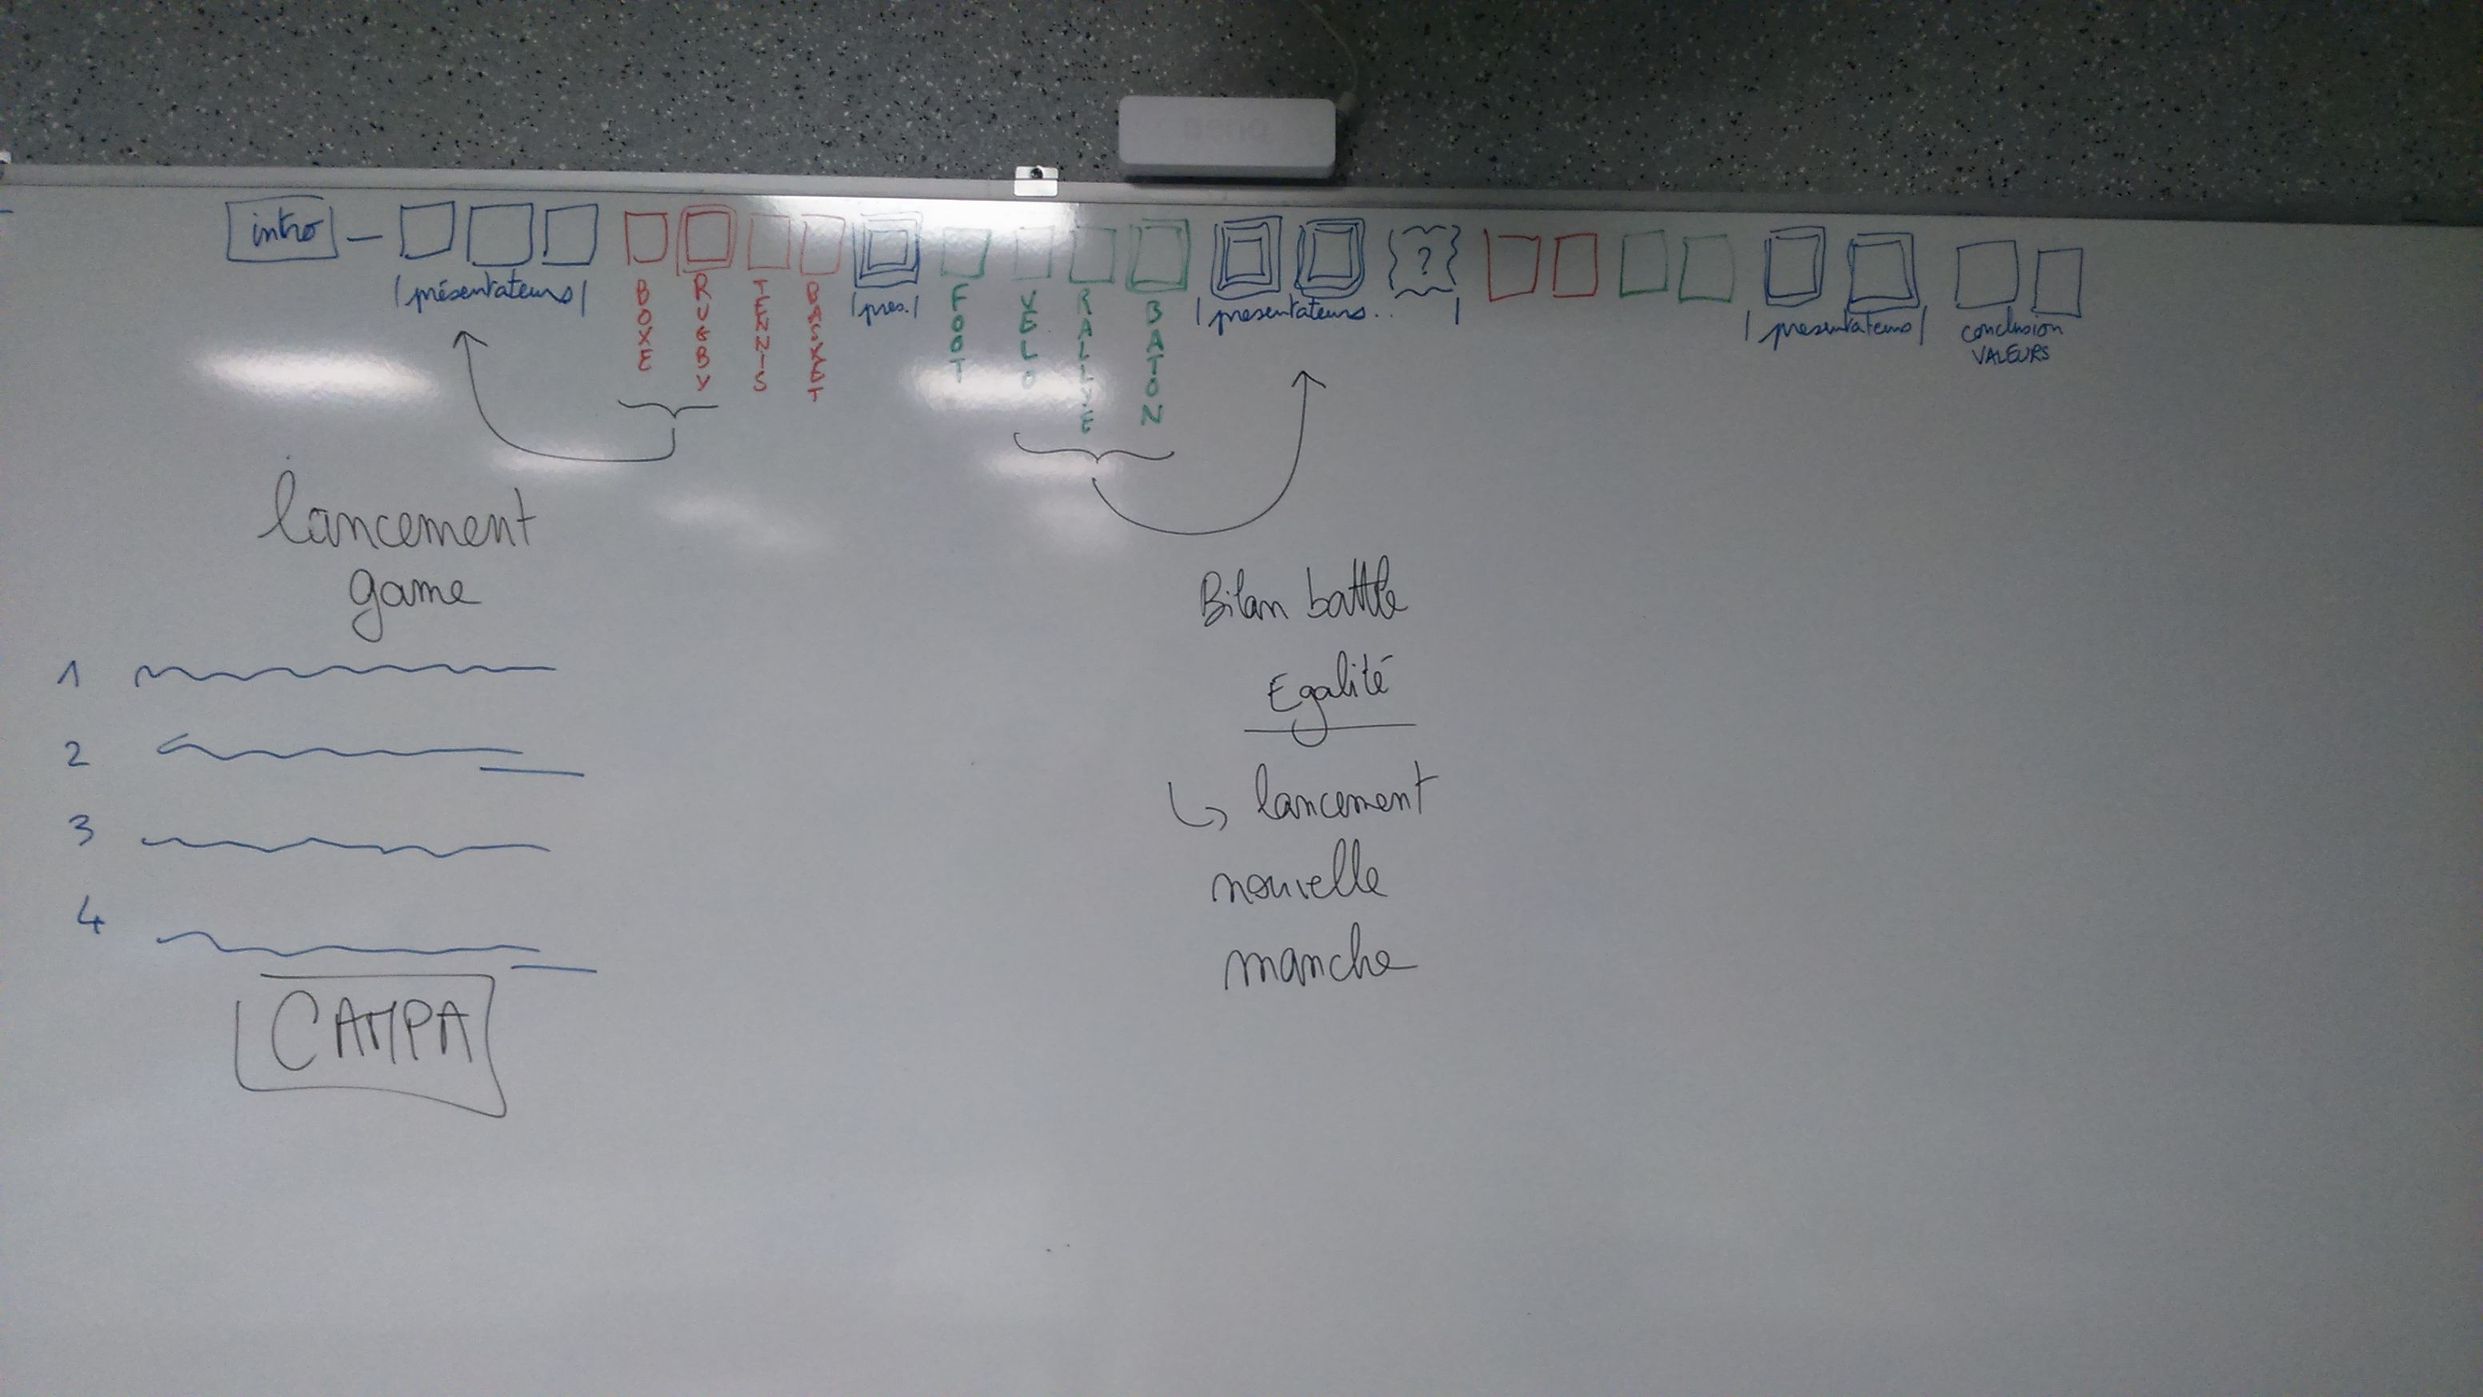 intro
présentateurs
BOXE
RUGBY
TENNIS
BASKET
pres.
FOOT
VÉLO
RALLYE
BATON
presentateurs..
?
presentateurs
conclusion
VALEURS
lancement
game
1
2
3
4
CAMPA
Bilan battle
Egalité
↳ lancement
nouvelle
manche